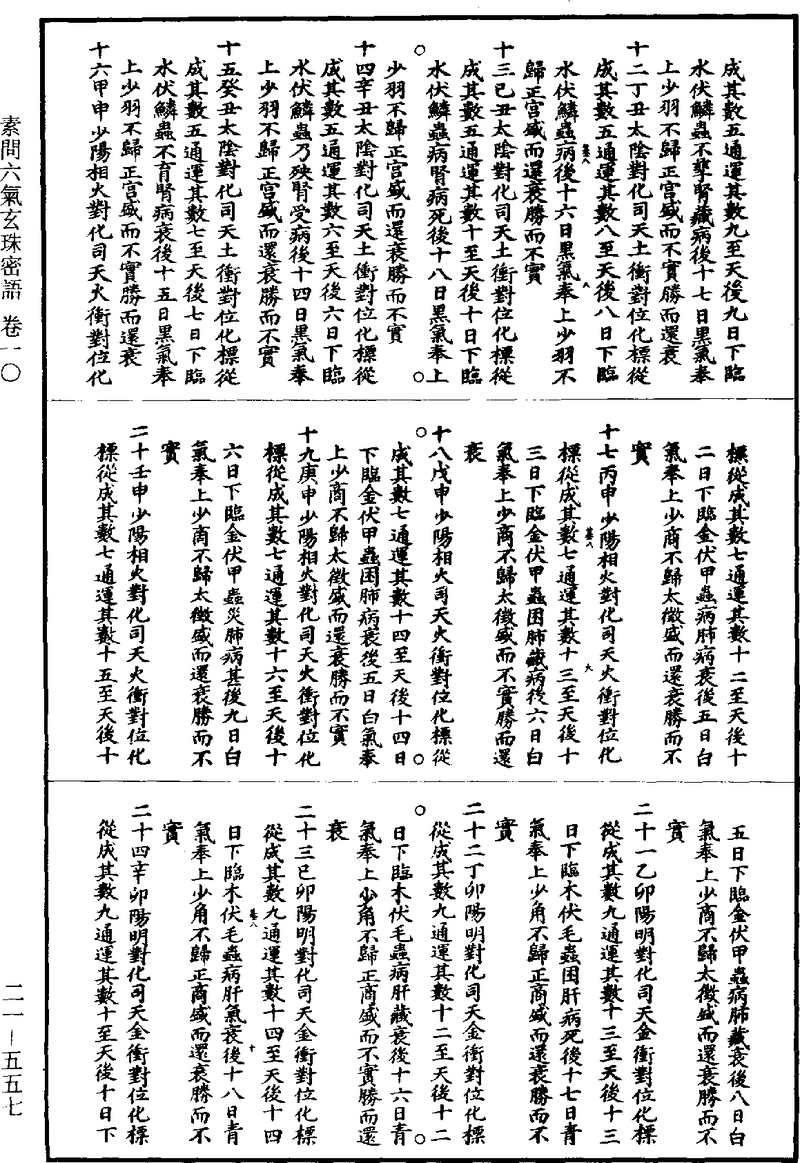 素問六氣玄珠密語 卷一〇
二一—五五七
成其數五通運其數九至天後九日下臨
水伏鱗蟲不孳腎藏病後十七日黑氣奉
上少羽不歸正宮盛而不實勝而還衰
十二丁丑太陰對化司天土衝對位化標從
成其數五通運其數八至天後八日下臨
水伏鱗蟲病後十六日黑氣奉上少羽不
歸正宮盛而還衰勝而不實
十三己丑太陰對化司天土衝對位化標從
成其數五通運其數十至天後十日下臨
水伏鱗蟲病腎病死後十八日黑氣奉上
少羽不歸正宮盛而還衰勝而不實
十四辛丑太陰對化司天土衝對位化標從
成其數五通運其數六至天後六日下臨
水伏鱗蟲乃殃腎受病後十四日黑氣奉
上少羽不歸正宮盛而還衰勝而不實
十五癸丑太陰對化司天土衝對位化標從
成其數五通運其數七至天後七日下臨
水伏鱗蟲不育腎病衰後十五日黑氣奉
上少羽不歸正宮盛而不實勝而還衰
十六甲申少陽相火對化司天火衝對位化
標從成其數七通運其數十二至天後十
二日下臨金伏甲蟲病肺病衰後五日白
氣奉上少商不歸太徵盛而還衰勝而不
實
十七丙申少陽相火對化司天火衝對位化
標從成其數七通運其數十三至天後十
三日下臨金伏甲蟲困肺藏病後六日白
氣奉上少商不歸太徵盛而不實勝而還
衰
十八戊申少陽相火司天火衝對位化標從
成其數七通運其數十四至天後十四日
下臨金伏甲蟲困肺病衰後五日白氣奉
上少商不歸太徵盛而還衰勝而不實
十九庚申少陽相火對化司天火衝對位化
標從成其數七通運其數十六至天後十
六日下臨金伏甲蟲災肺病甚後九日白
氣奉上少商不歸太徵盛而還衰勝而不
實
二十壬申少陽相火對化司天火衝對位化
標從成其數七通運其數十五至天後十
五日下臨金伏甲蟲病肺藏衰後八日白
氣奉上少商不歸太徵盛而還衰勝而不
實
二十一乙卯陽明對化司天金衝對位化標
從成其數九通運其數十三至天後十三
日下臨木伏毛蟲困肝病死後十七日青
氣奉上少角不歸正商盛而還衰勝而不
實
二十二丁卯陽明對化司天金衝對位化標
從成其數九通運其數十二至天後十二
日下臨木伏毛蟲病肝藏衰後十六日青
氣奉上少角不歸正商盛而不實勝而還
衰
二十三己卯陽明對化司天金衝對位化標
從成其數九通運其數十四至天後十四
日下臨木伏毛蟲病肝氣衰後十八日青
氣奉上少角不歸正商盛而還衰勝而不
實
二十四辛卯陽明對化司天金衝對位化標
從成其數九通運其數十至天後十日下